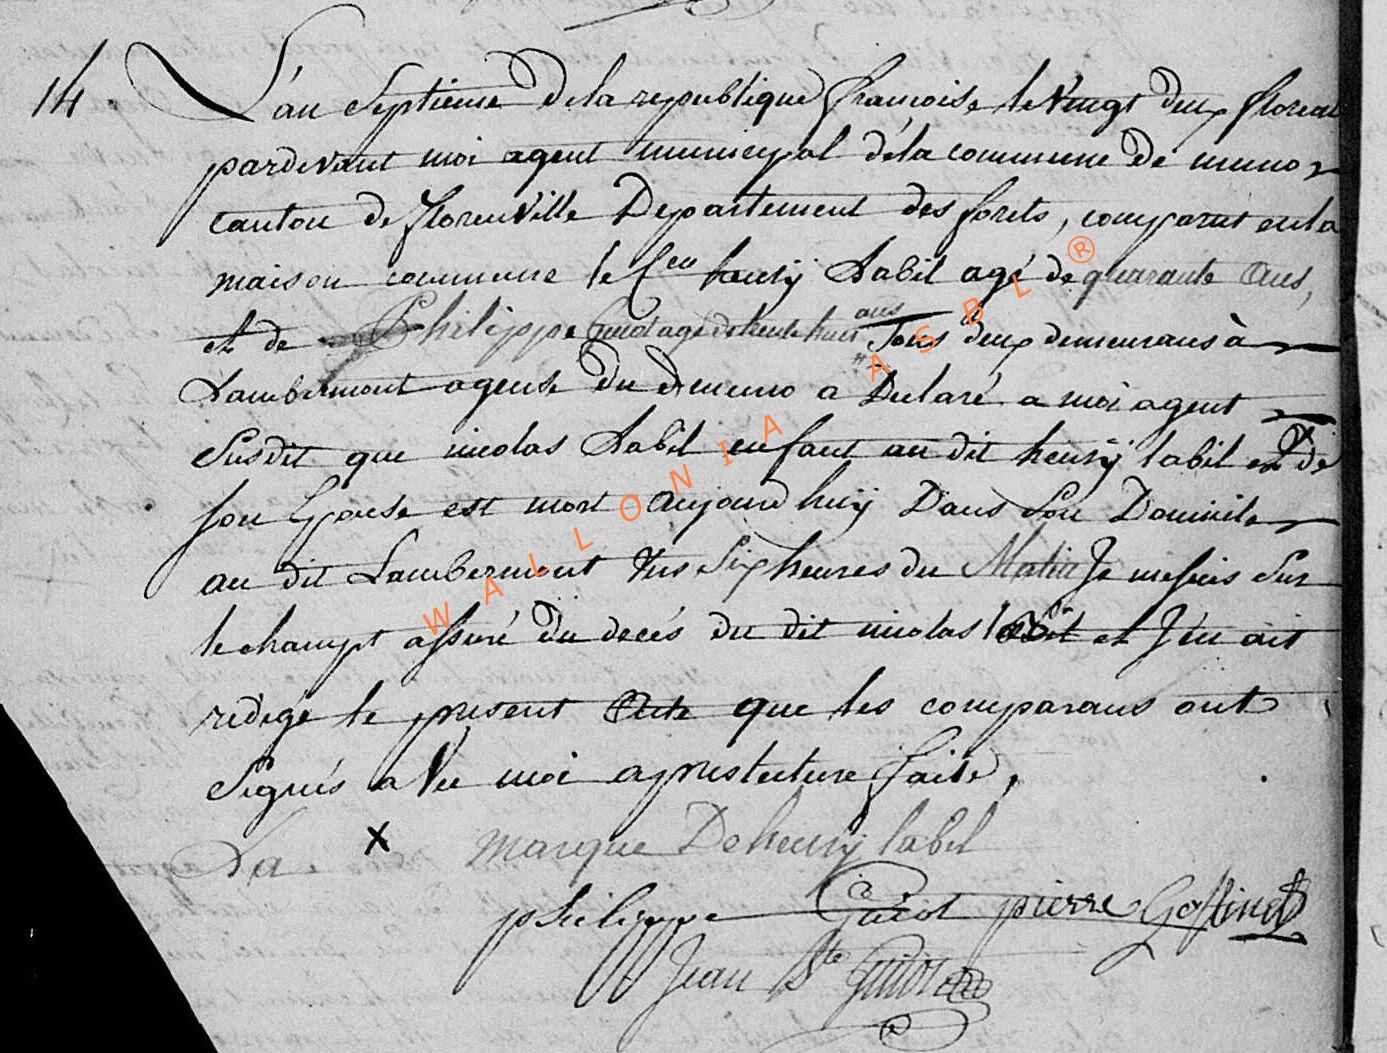 14 L'an Septieme dela republique françoise le Vingt deux floreal
pardevant moi agent municipal déla commune de muno
canton de florenville Departement des forets, comparut enla
maison commune le Cen henrÿ Labil agé de quarante ans,
et de Philippe Guiot agé de trente huit ans Tous deux demeurans à
Lambermont agense du d muno a Déclaré a moi agent
Susdit que nicolas Labil enfant au dit henrÿ labil et de
son Epouse est mort aujourd huÿ Dans Son Domicile
au dit Lambermont Vers Six heures du Matin Je me suis Sur
le champt assuré du decés du dit nicolas labil et J'en ait
rédigé le present Acte que les comparans ont
Signés avec moi apres lecture faite,
La X marque De henrÿ labil
philippe Guiot pierre Goffinet
Jean Bte Guiot
WALLONIA ASBL ®